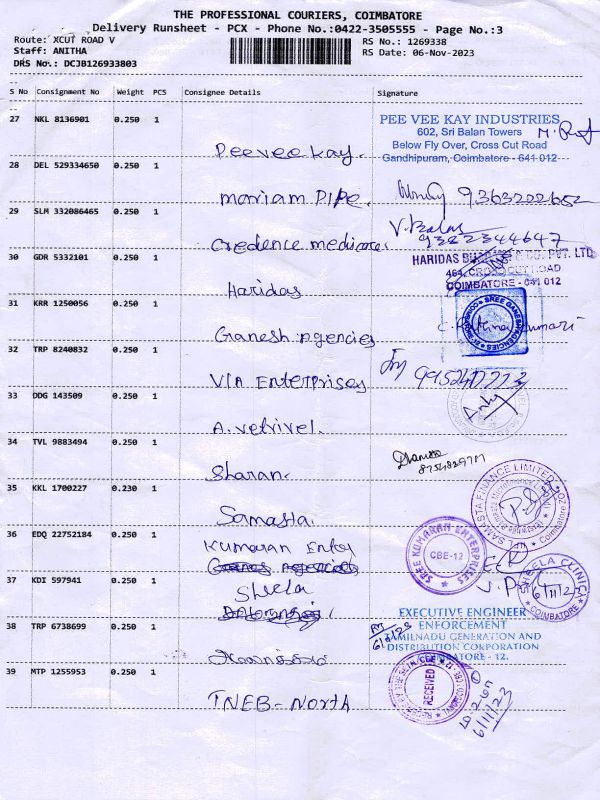 THE PROFESSIONAL COURIERS, COIMBATORE
Delivery Runsheet - PCX - Phone No.:0422-3505555 - Page No.:3
Route: XCUT ROAD V
RS No.: 1269338
Staff: ANITHA
RS Date: 06-Nov-2023
DRS No.: DCJB126933803
S No Consignment No Weight PCS Consignee Details Signature
27 NKL 8136901 0.250 1
PEE VEE KAY INDUSTRIES
602, Sri Balan Towers
Below Fly Over, Cross Cut Road
Gandhipuram, Coimbatore - 641 012
Peevee Kay.
28 DEL 529334650 0.250 1
mariam PIPe.
9363202652
29 SLM 332086465 0.250 1
V. Balas
9382344647
Credence medicare.
30 GDR 5332101 0.250 1
HARIDAS & CO. PVT. LTD
464, CROSS CUT ROAD
COIMBATORE - 641 012
Haridas
31 KRR 1250056 0.250 1
SREE GANESH AGENCIES
Ganesh Agencies
32 TRP 8240832 0.250 1
VIA Enterprises
33 DDG 143509 0.250 1
A. vetrivel.
34 TVL 9883494 0.250 1
Sharan.
35 KKL 1700227 0.230 1
SAMASTA FINANCE LIMITED
Coimbatore
Samasta.
36 EDQ 22752184 0.250 1
SREE KUMARAN ENTERPRISES
CBE-12
Kumaran Enty
37 KDI 597941 0.250 1
SHEELA CLINIC
COIMBATORE
6/11/2
Sheela
38 TRP 6738699 0.250 1
EXECUTIVE ENGINEER
ENFORCEMENT
TAMILNADU GENERATION AND
DISTRIBUTION CORPORATION
COIMBATORE - 12.
39 MTP 1255953 0.250 1
RECEIVED
6/11/23
TNEB - North